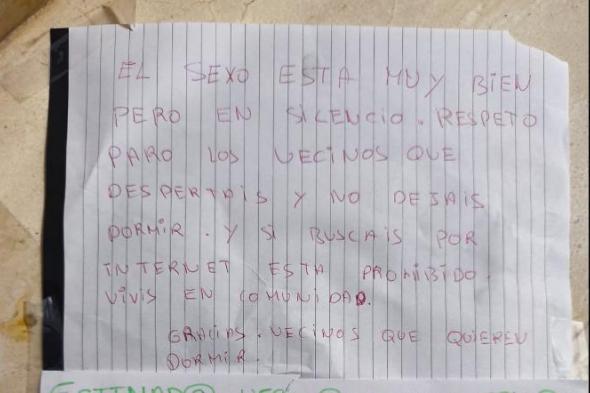 EL SEXO ESTA MUY BIEN
PERO EN SILENCIO. RESPETO
PARO LOS VECINOS QUE
DESPERTAIS Y NO DEJAIS
DORMIR. Y SI BUSCAIS POR
INTERNET ESTA PROHIBIDO.
VIVIS EN COMUNIDAD.
GRACIAS. VECINOS QUE QUIEREN
DORMIR.